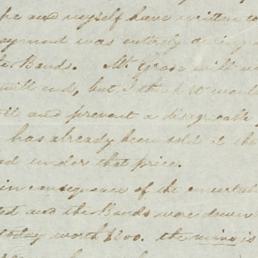 he and myself have written to
payment was entirely owing
the Bonds. Mr
will end, but I think it would
and prevent a disagreeable
has already been sold at the
ed under that price.
in consequence of the uncertain
ed and the Bonds were down
today worth $200. the